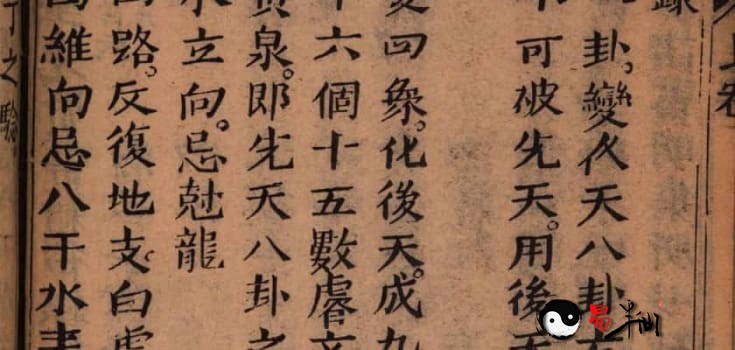 錄
卦。變天八卦
可破先天。用後天
四象。化後天。成九
十六個十五數
黃泉。即先天八卦之
水立向。忌尅龍
路。反復地支。白虎
維向忌八干水來
之
易半仙